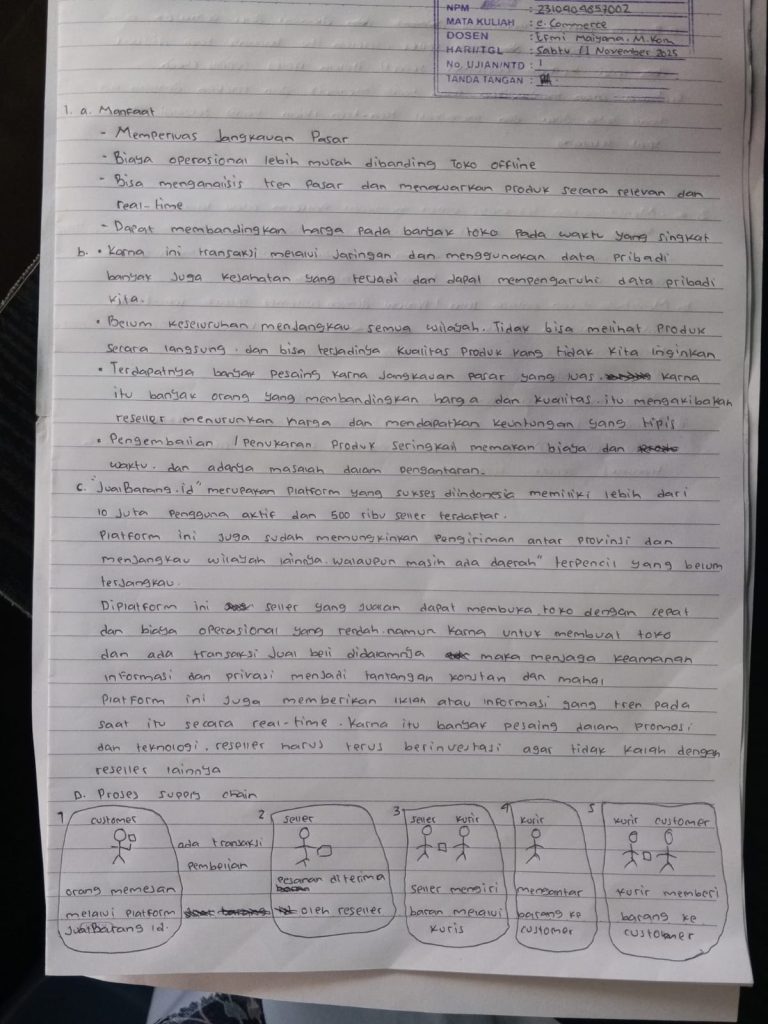 NPM : 2310909657002
MATA KULIAH : e. Commerce
DOSEN : Ermi Maiyana. M.Kom
HARI/TGL : Sabtu / 1 November 2025
No, UJIAN/NTD : 1
TANDA TANGAN :
1. a. Manfaat
- Memperluas Jangkauan Pasar
- Biaya operasional lebih murah dibanding Toko offline
- Bisa menganalisis tren pasar dan menawarkan produk secara relevan dan
real-time
- Dapat membandingkan harga pada banyak toko pada waktu yang singkat
b. • Karna ini transaksi melalui jaringan dan menggunakan data pribadi
banyak juga kejahatan yang terjadi dan dapat mempengaruhi data pribadi
kita.
• Belum keseluruhan menjangkau semua wilayah. Tidak bisa melihat produk
secara langsung. dan bisa terjadinya kualitas produk yang tidak kita inginkan
• Terdapatnya banyak pesaing karna jangkauan pasar yang luas. karna
itu banyak orang yang membandingkan harga dan kualitas. itu mengakibatkan
reseller menurunkan harga dan mendapatkan keuntungan yang tipis
• Pengembalian / Penukaran produk seringkali memakan biaya dan
waktu. dan adanya masalah dalam pengantaran.
c. "JualBarang.id" merupakan platform yang sukses diindonesia memiliki lebih dari
10 juta pengguna aktif dan 500 ribu seller terdaftar.
Platform ini juga sudah memungkinkan pengiriman antar provinsi dan
menjangkau wilayah lainnya. walaupun masih ada daerah" terpencil yang belum
terjangkau.
Diplatform ini seller yang jualan dapat membuka toko dengan cepat
dan biaya operasional yang rendah. namun karna untuk membuat toko
dan ada transaksi jual beli didalamnya maka menjaga keamanan
informasi dan privasi menjadi tantangan konstan dan mahal
Platform ini juga memberikan iklan atau informasi yang tren pada
saat itu secara real-time. Karna itu banyak pesaing dalam promosi
dan teknologi, reseller harus terus berinvestasi agar tidak kalah dengan
reseller lainnya
D. Proses supply chain
1
customer
ada transaksi
pembelian
orang memesan
melalui platform
JualBarang id.
2
seller
pesanan diterima
oleh reseller
3
seller kurir
seller mengiri
baran melalui
kuris
4
kurir
mengantar
barang ke
customer
5
kurir customer
kurir memberi
barang ke
customer